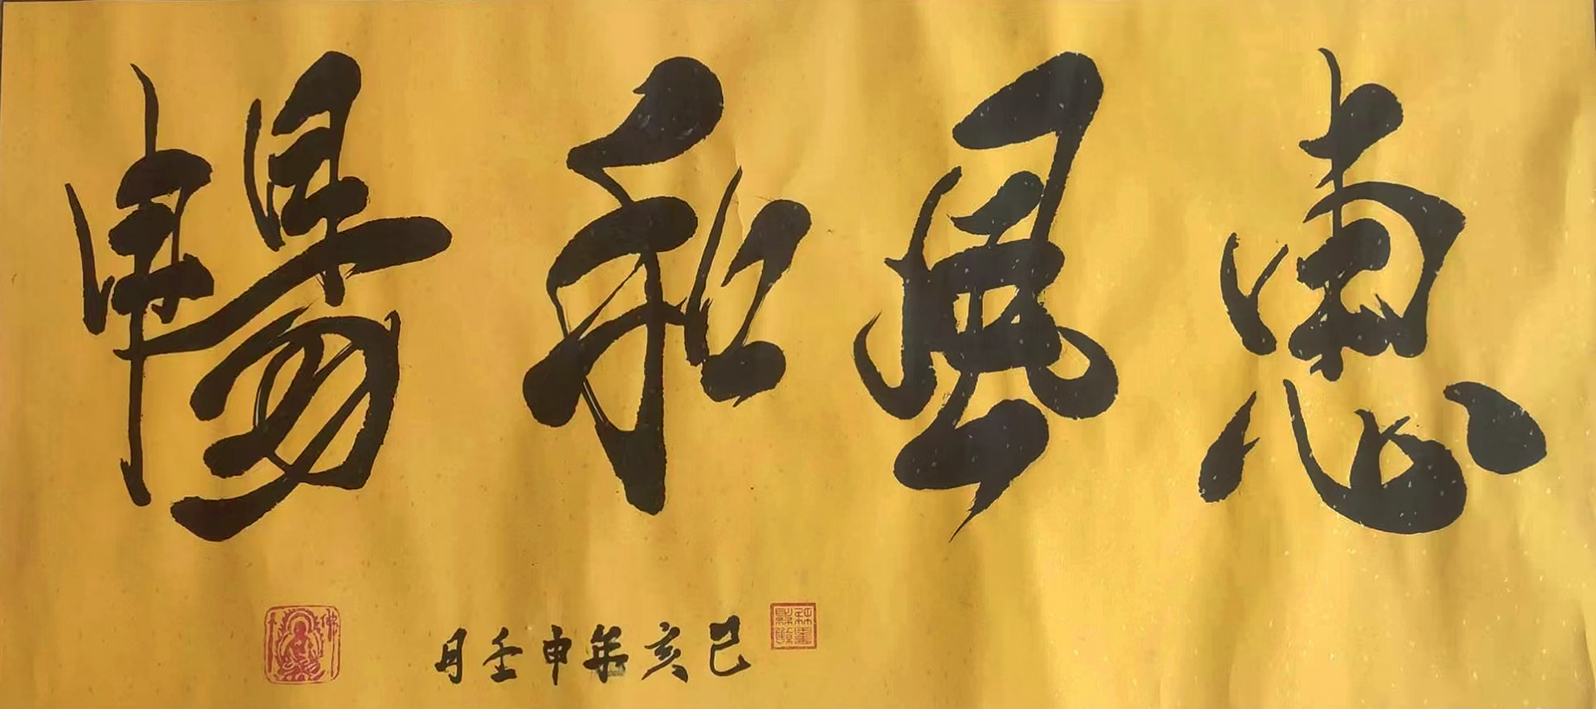 惠風和暢
己亥年申壬月